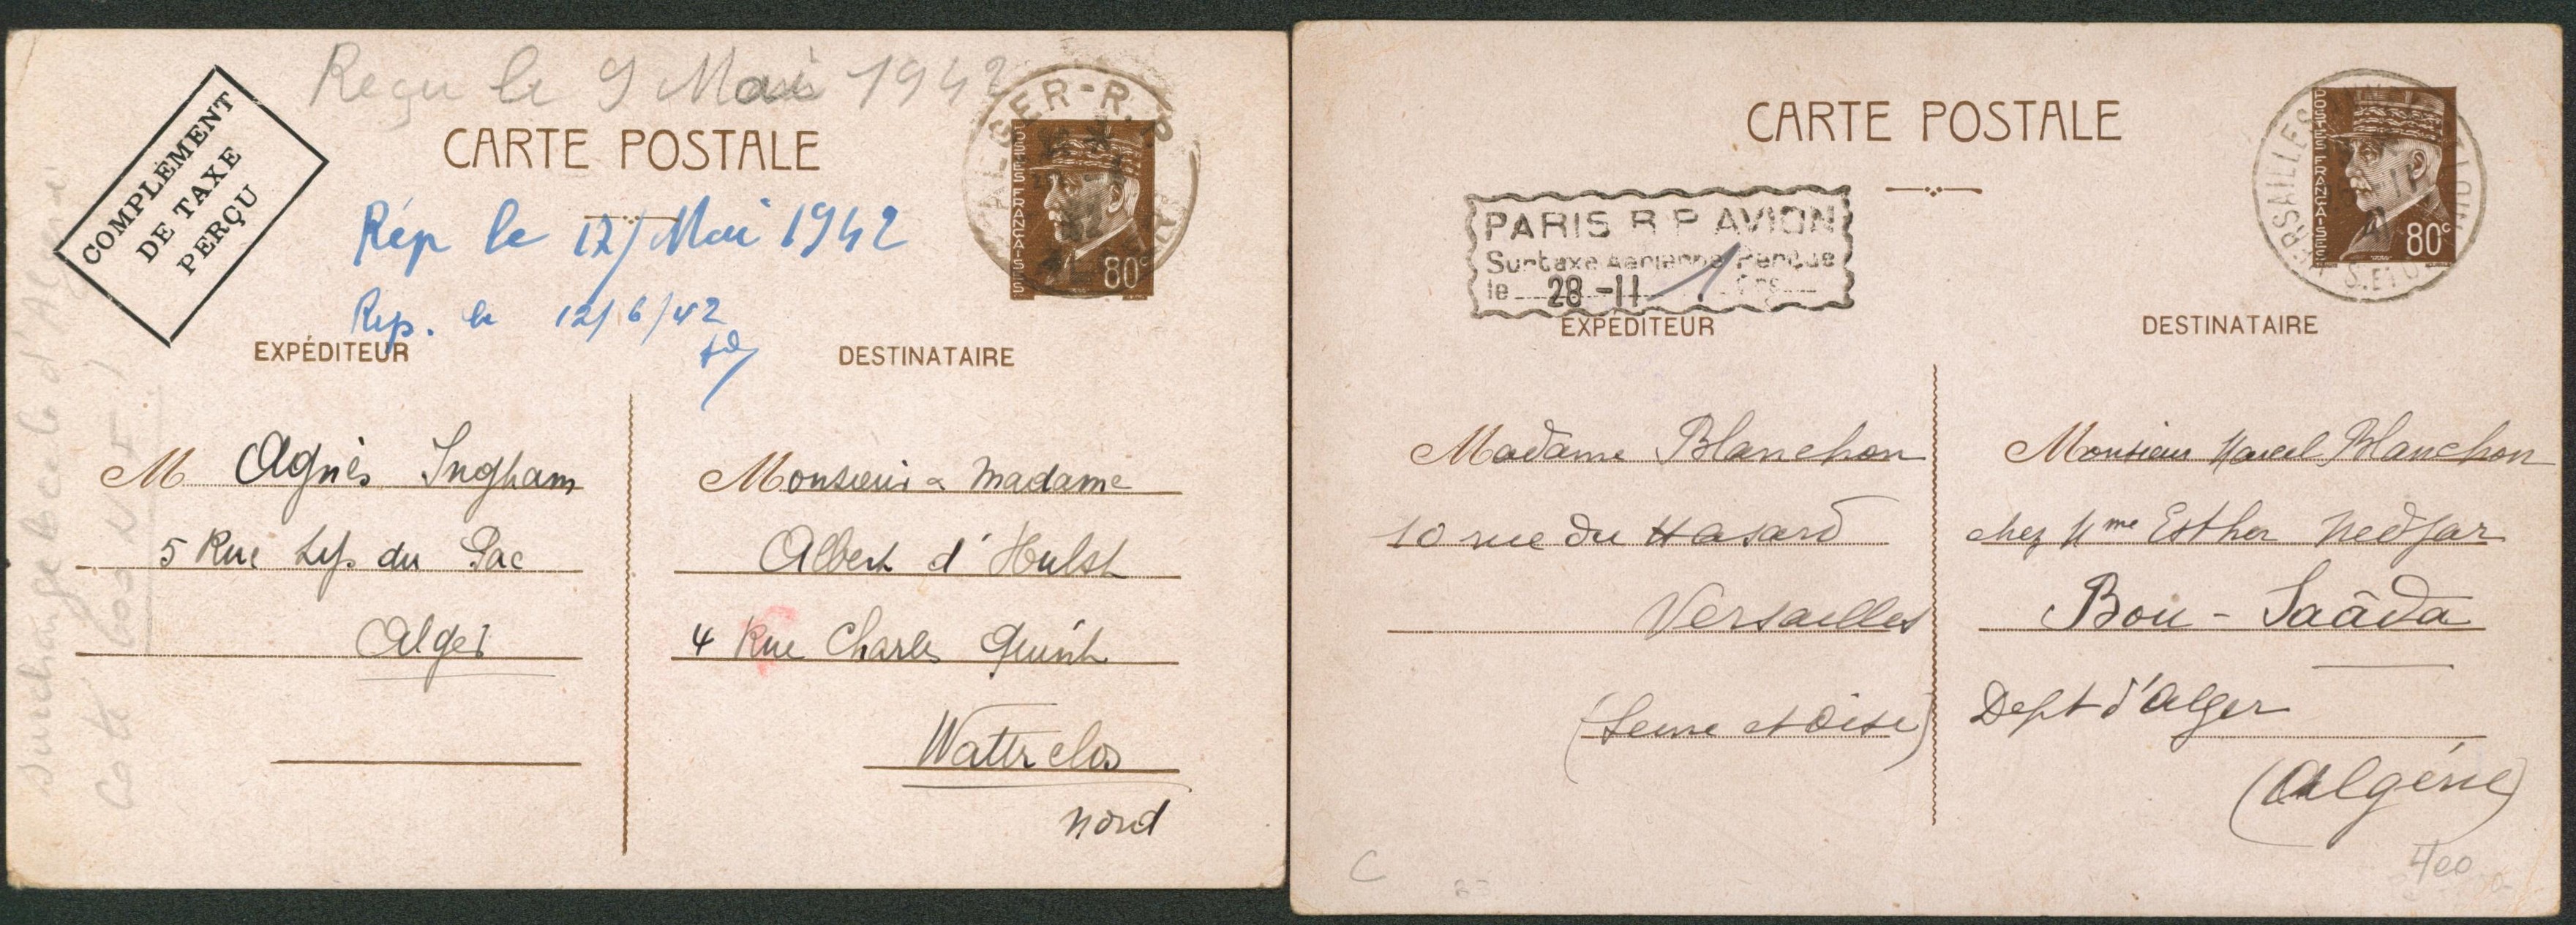 Reçu le 9 Mai 1942
COMPLÉMENT
DE TAXE
PERÇU
CARTE POSTALE
ALGER-R.P
POSTES FRANÇAISES
80c
Rép le 12/ Mai 1942
Rep. le 12/6/42
EXPÉDITEUR
DESTINATAIRE
M Agnès Ingham
5 Rue du
Alger
Monsieur & Madame
Albert d'Hulst
4 Rue Charles Quint
Wattrelos
Nord
CARTE POSTALE
VERSAILLES
S.ET O
POSTES FRANÇAISES
80c
PARIS R P AVION
Surtaxe Aérienne Perçue
le 28-11 1 Frs
EXPÉDITEUR
DESTINATAIRE
Madame Blanchon
10 rue du Hasard
Versailles
(Seine et Oise)
Monsieur Marcel Blanchon
chez Mme Esther Nedjar
Bou-Saâda
Dept d'Alger
(Algérie)
C